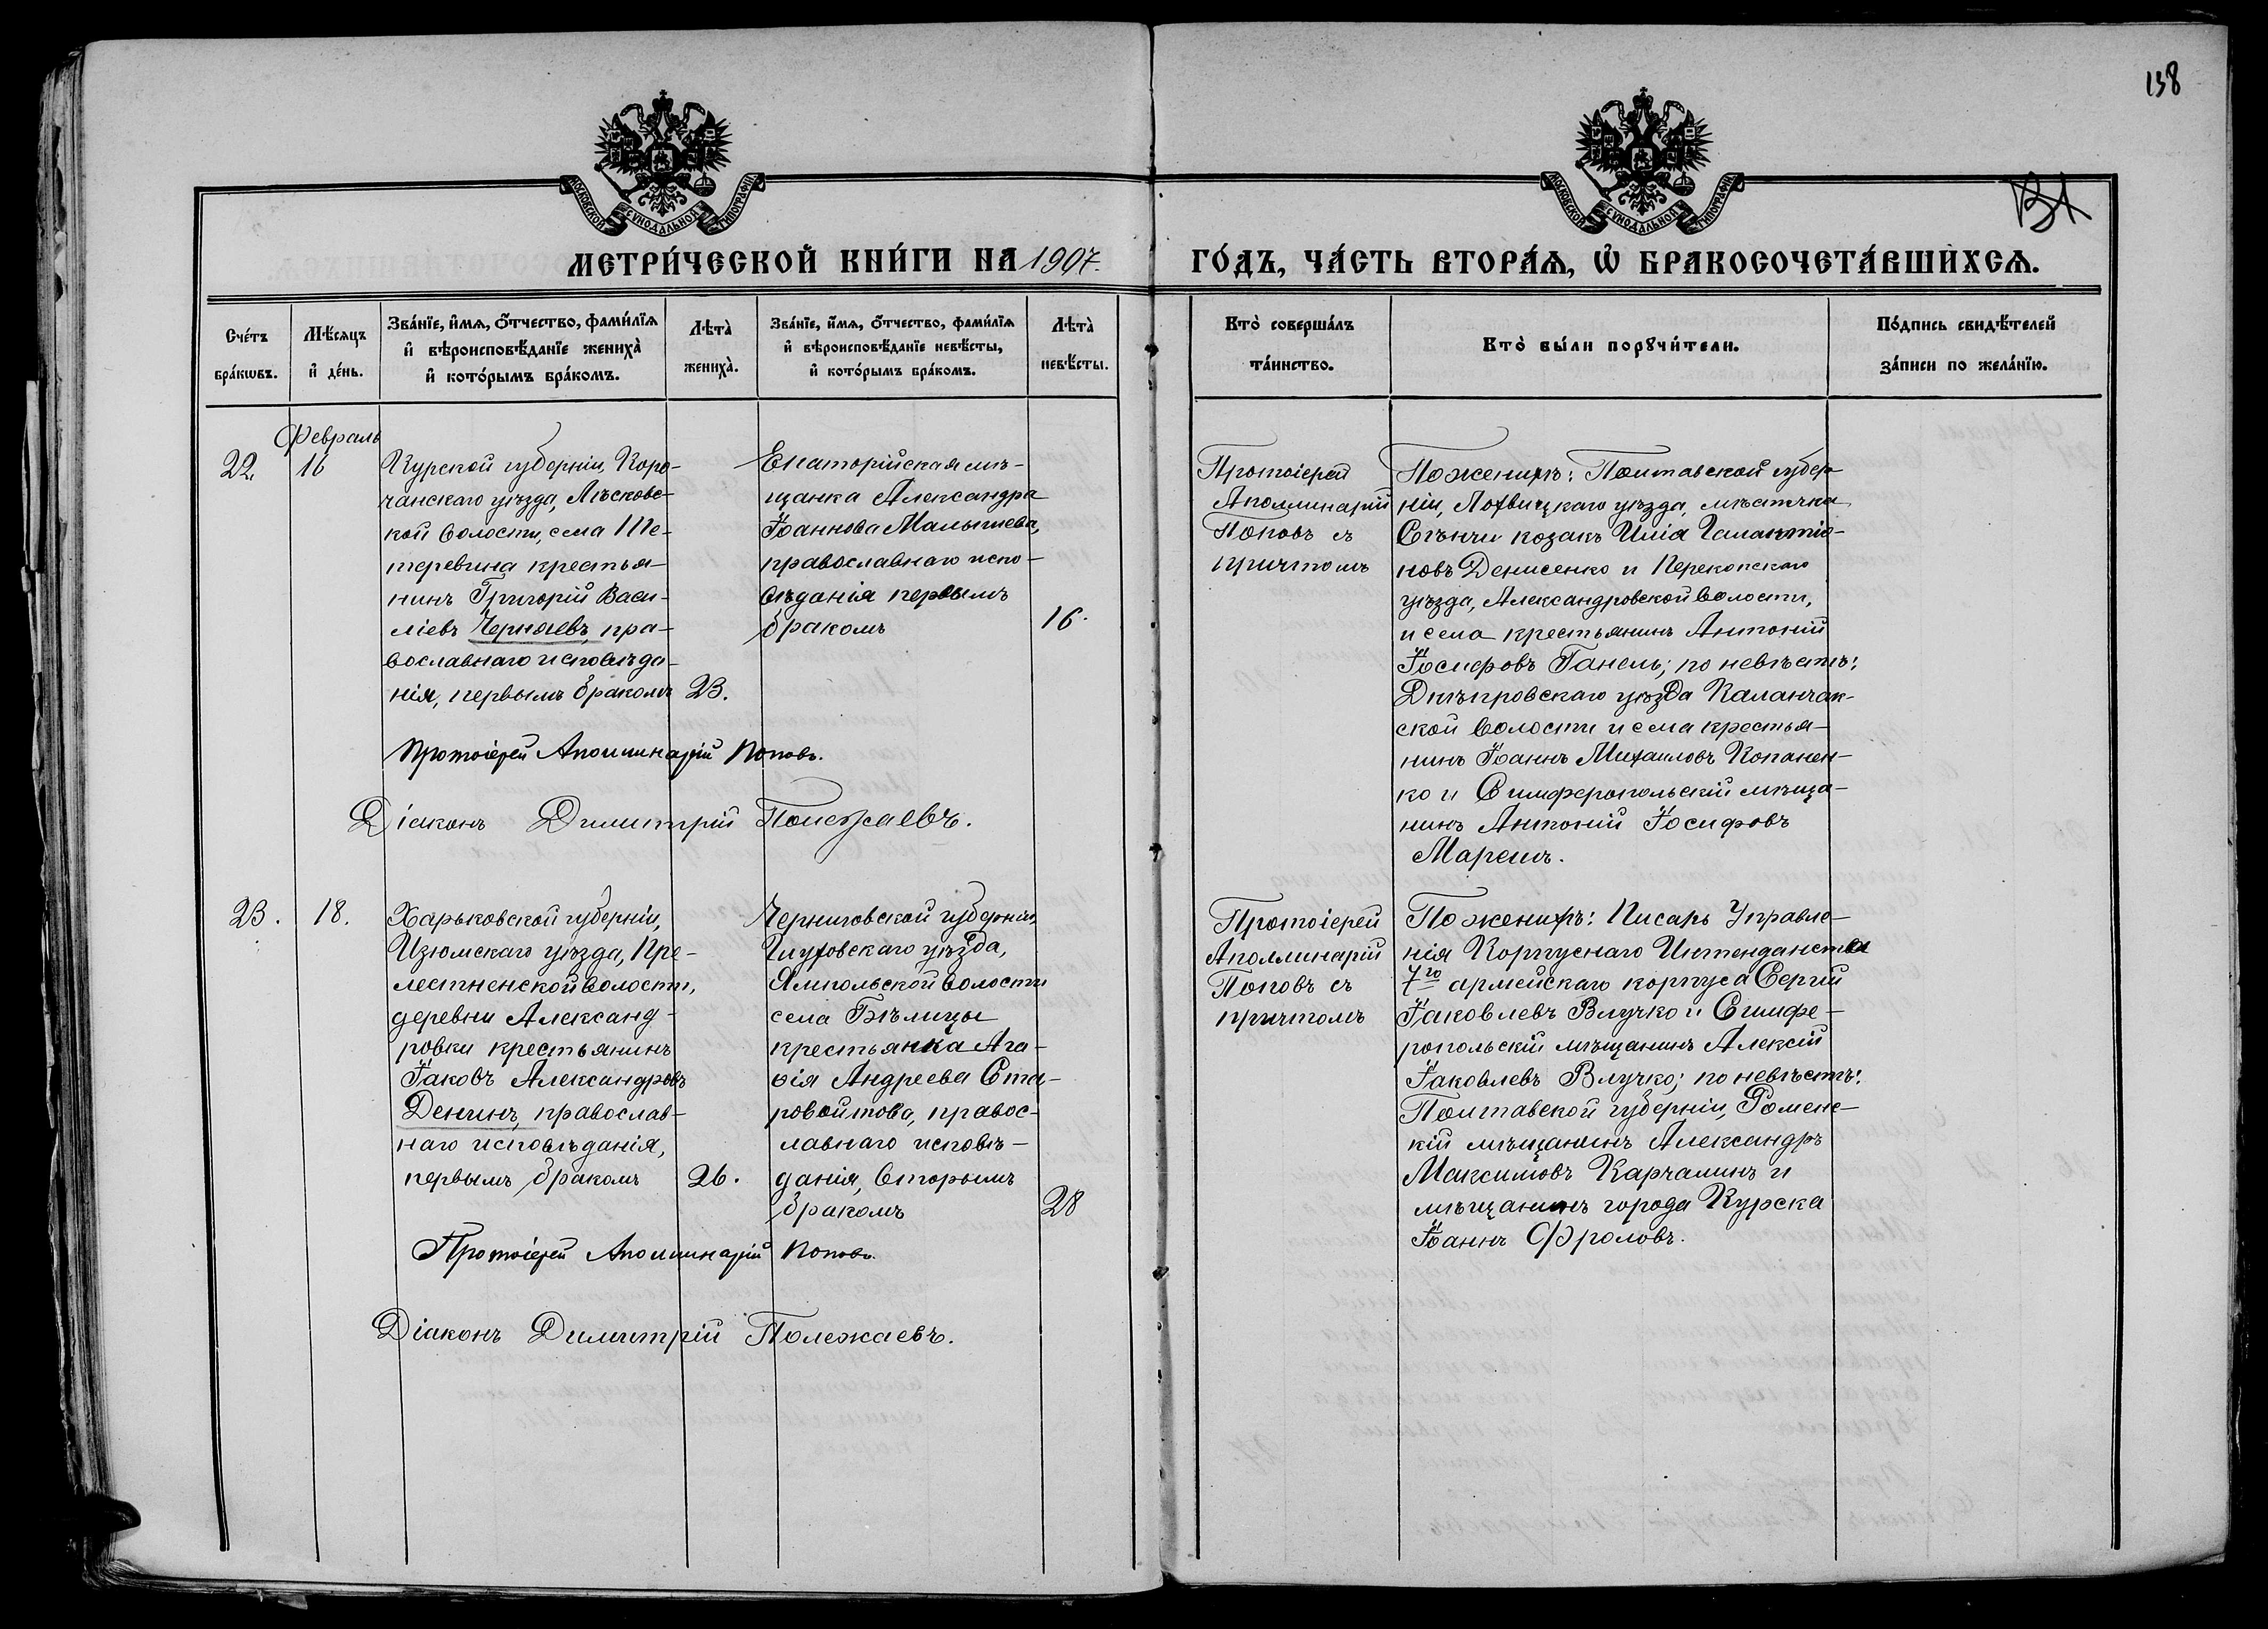 138
ВА
МОСКОВСКОЙ СѴНОДАЛЬНОЙ ТИПОГРАФІИ
МОСКОВСКОЙ СѴНОДАЛЬНОЙ ТИПОГРАФІИ
МЕТРИ́ЧЕСКОЙ КНИ́ГИ НА 1907. ГО́ДЪ, ЧА́СТЬ ВТОРА́Ѧ, Ѡ҆ БРАКОСОЧЕТА́ВШИХСѦ.
Сче́тъ
бра́кѡвъ.
Мѣ́сѧцъ
и҆ де́нь.
Зва́нїе, и҆́мѧ, ѻ҆́тчество, фами́лїѧ
и҆ вѣроисповѣ́данїе жениха̀
и҆ кото́рымъ бра́комъ.
Лѣта̀
жениха̀.
Зва́нїе, и҆́мѧ, ѻ҆́тчество, фами́лїѧ
и҆ вѣроисповѣ́данїе невѣ́сты,
и҆ кото́рымъ бра́комъ.
Лѣта̀
невѣ́сты.
Кто̀ соверша́лъ
та́инство.
Кто̀ бы́ли порꙋчи́тели.
По́дпись свидѣ́телей
за́писи по жела́нїю.
Февраль
22
16
Курской губерніи, Коро-
чанскаго уѣзда, Лѣсковс-
кой волости, села Ше-
теревина крестья-
нинъ Григорій Васи-
ліевъ Черняевъ, пра-
вославнаго исповѣда-
нія, первымъ бракомъ
23.
Евпаторійская мѣ-
щанка Александра
Іоаннова Малышева,
православнаго испо-
вѣданія первымъ
бракомъ
16.
Протоіерей
Аполлинарій
Поповъ съ
причтомъ
По женихѣ: Полтавской губер-
ніи, Лохвицкаго уѣзда, мѣстечка
Сѣнчи козакъ Илія Галактіо-
новъ Денисенко и Перекопскаго
уѣзда, Александровской волости,
и села крестьянинъ Антоній
Іосифовъ Ганель; по невѣстѣ:
Днѣпровскаго уѣзда Каланчак-
ской волости и села крестья-
нинъ Іоаннъ Михаиловъ Копанен-
ко и Симферопольскій мѣща-
нинъ Антоній Іосифовъ
Марешъ.
Протоіерей Аполлинарій Поповъ.
Діаконъ Димитрій Полежаевъ.
23.
18.
Харьковской губерніи,
Изюмскаго уѣзда, Пре-
лестненской волости,
деревни Александ-
ровки крестьянинъ
Іаковъ Александровъ
Денинъ, православ-
наго исповѣданія,
первымъ бракомъ
26.
Черниговской губерніи,
Глуховскаго уѣзда,
Ямпольской волости
села Бѣлицы
крестьянка Ага-
ѳія Андреева Ста-
ровойтова, правос-
лавнаго исповѣ-
данія, вторымъ
бракомъ
28
Протоіерей
Аполлинарій
Поповъ съ
причтомъ
По женихѣ: Писарь Управле-
нія Корпуснаго Интендантства
7го армейскаго корпуса Сергій
Іаковлевъ Влучко и Симфе-
ропольскій мѣщанинъ Алексій
Іаковлевъ Влучко; по невѣстѣ:
Полтавской губерніи, Роменс-
кій мѣщанинъ Александръ
Максимовъ Карчалинъ и
мѣщанинъ города Курска
Іоаннъ Фроловъ.
Протоіерей Аполлинарій Поповъ.
Діаконъ Димитрій Полежаевъ.